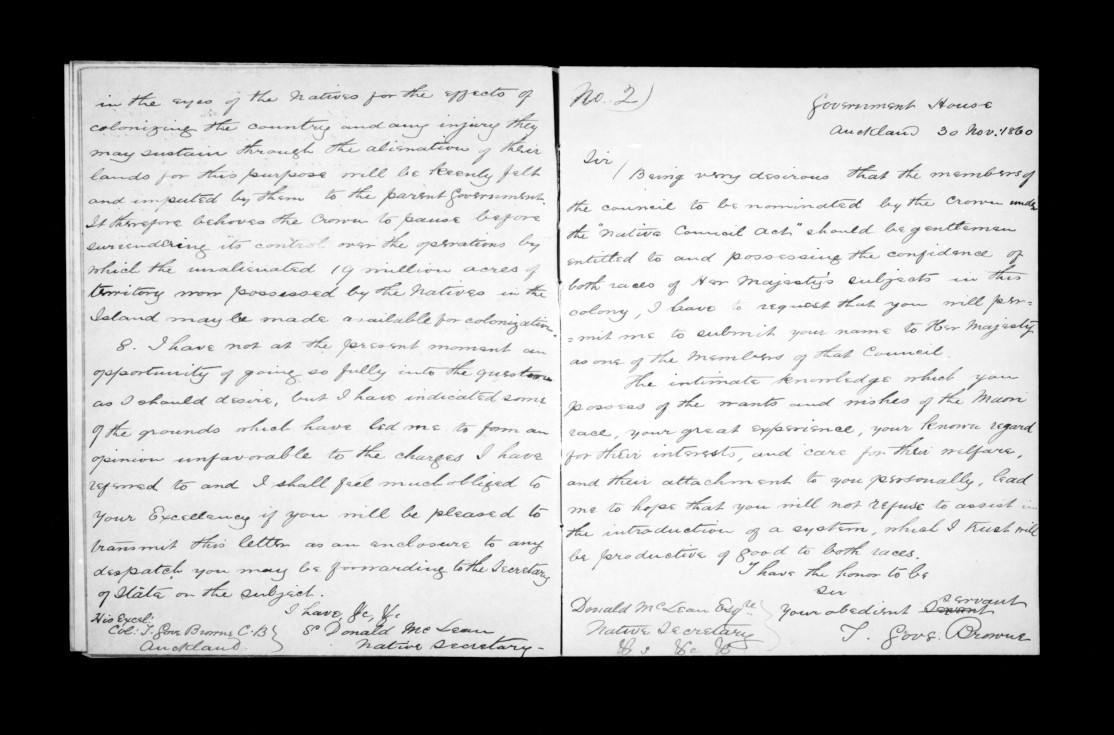 in the eyes of the Natives for the effects of
colonizing the country and any injury they
may sustain through the alienation of their
lands for this purpose will be keenly felt
and imputed by them to the parent Government.
It therefore behoves the Crown to pause before
surrendering its control over the operations by
which the unalienated 19 million acres of
territory now possessed by the Natives in the
Island may be made available for colonization.
8. I have not at the present moment an
opportunity of going so fully into the question
as I should desire, but I have indicated some
of the grounds which have led me to form an
opinion unfavorable to the charges I have
referred to and I shall feel much obliged to
your Excellency if you will be pleased to
transmit this letter as an enclosure to any
despatch you may be forwarding to the Secretary
of State on the subject.
I have, &c, &c
His Excel:
Col: T. Gore Browne C.B
Auckland.
Sd Donald McLean
Native Secretary -
No. 2)
Government House
Auckland 30 Nov. 1860
Sir
/ Being very desirous that the members of
the council to be nominated by the Crown under
the "Native Council Act" should be gentlemen
entitled to and possessing the confidence of
both races of Her Majesty's subjects in this
colony, I have to request that you will per=
=mit me to submit your name to Her Majesty
as one of the Members of that Council.
The intimate knowledge which you
possess of the wants and wishes of the Maori
race, your great experience, your known regard
for their interests, and care for their welfare,
and their attachment to you personally, lead
me to hope that you will not refuse to assist in
the introduction of a system, which I trust will
be productive of good to both races.
I have the honor to be
Sir
Your obedient servant
T. Gore Browne
Donald McLean Esqre
Native Secretary
&c &c &c